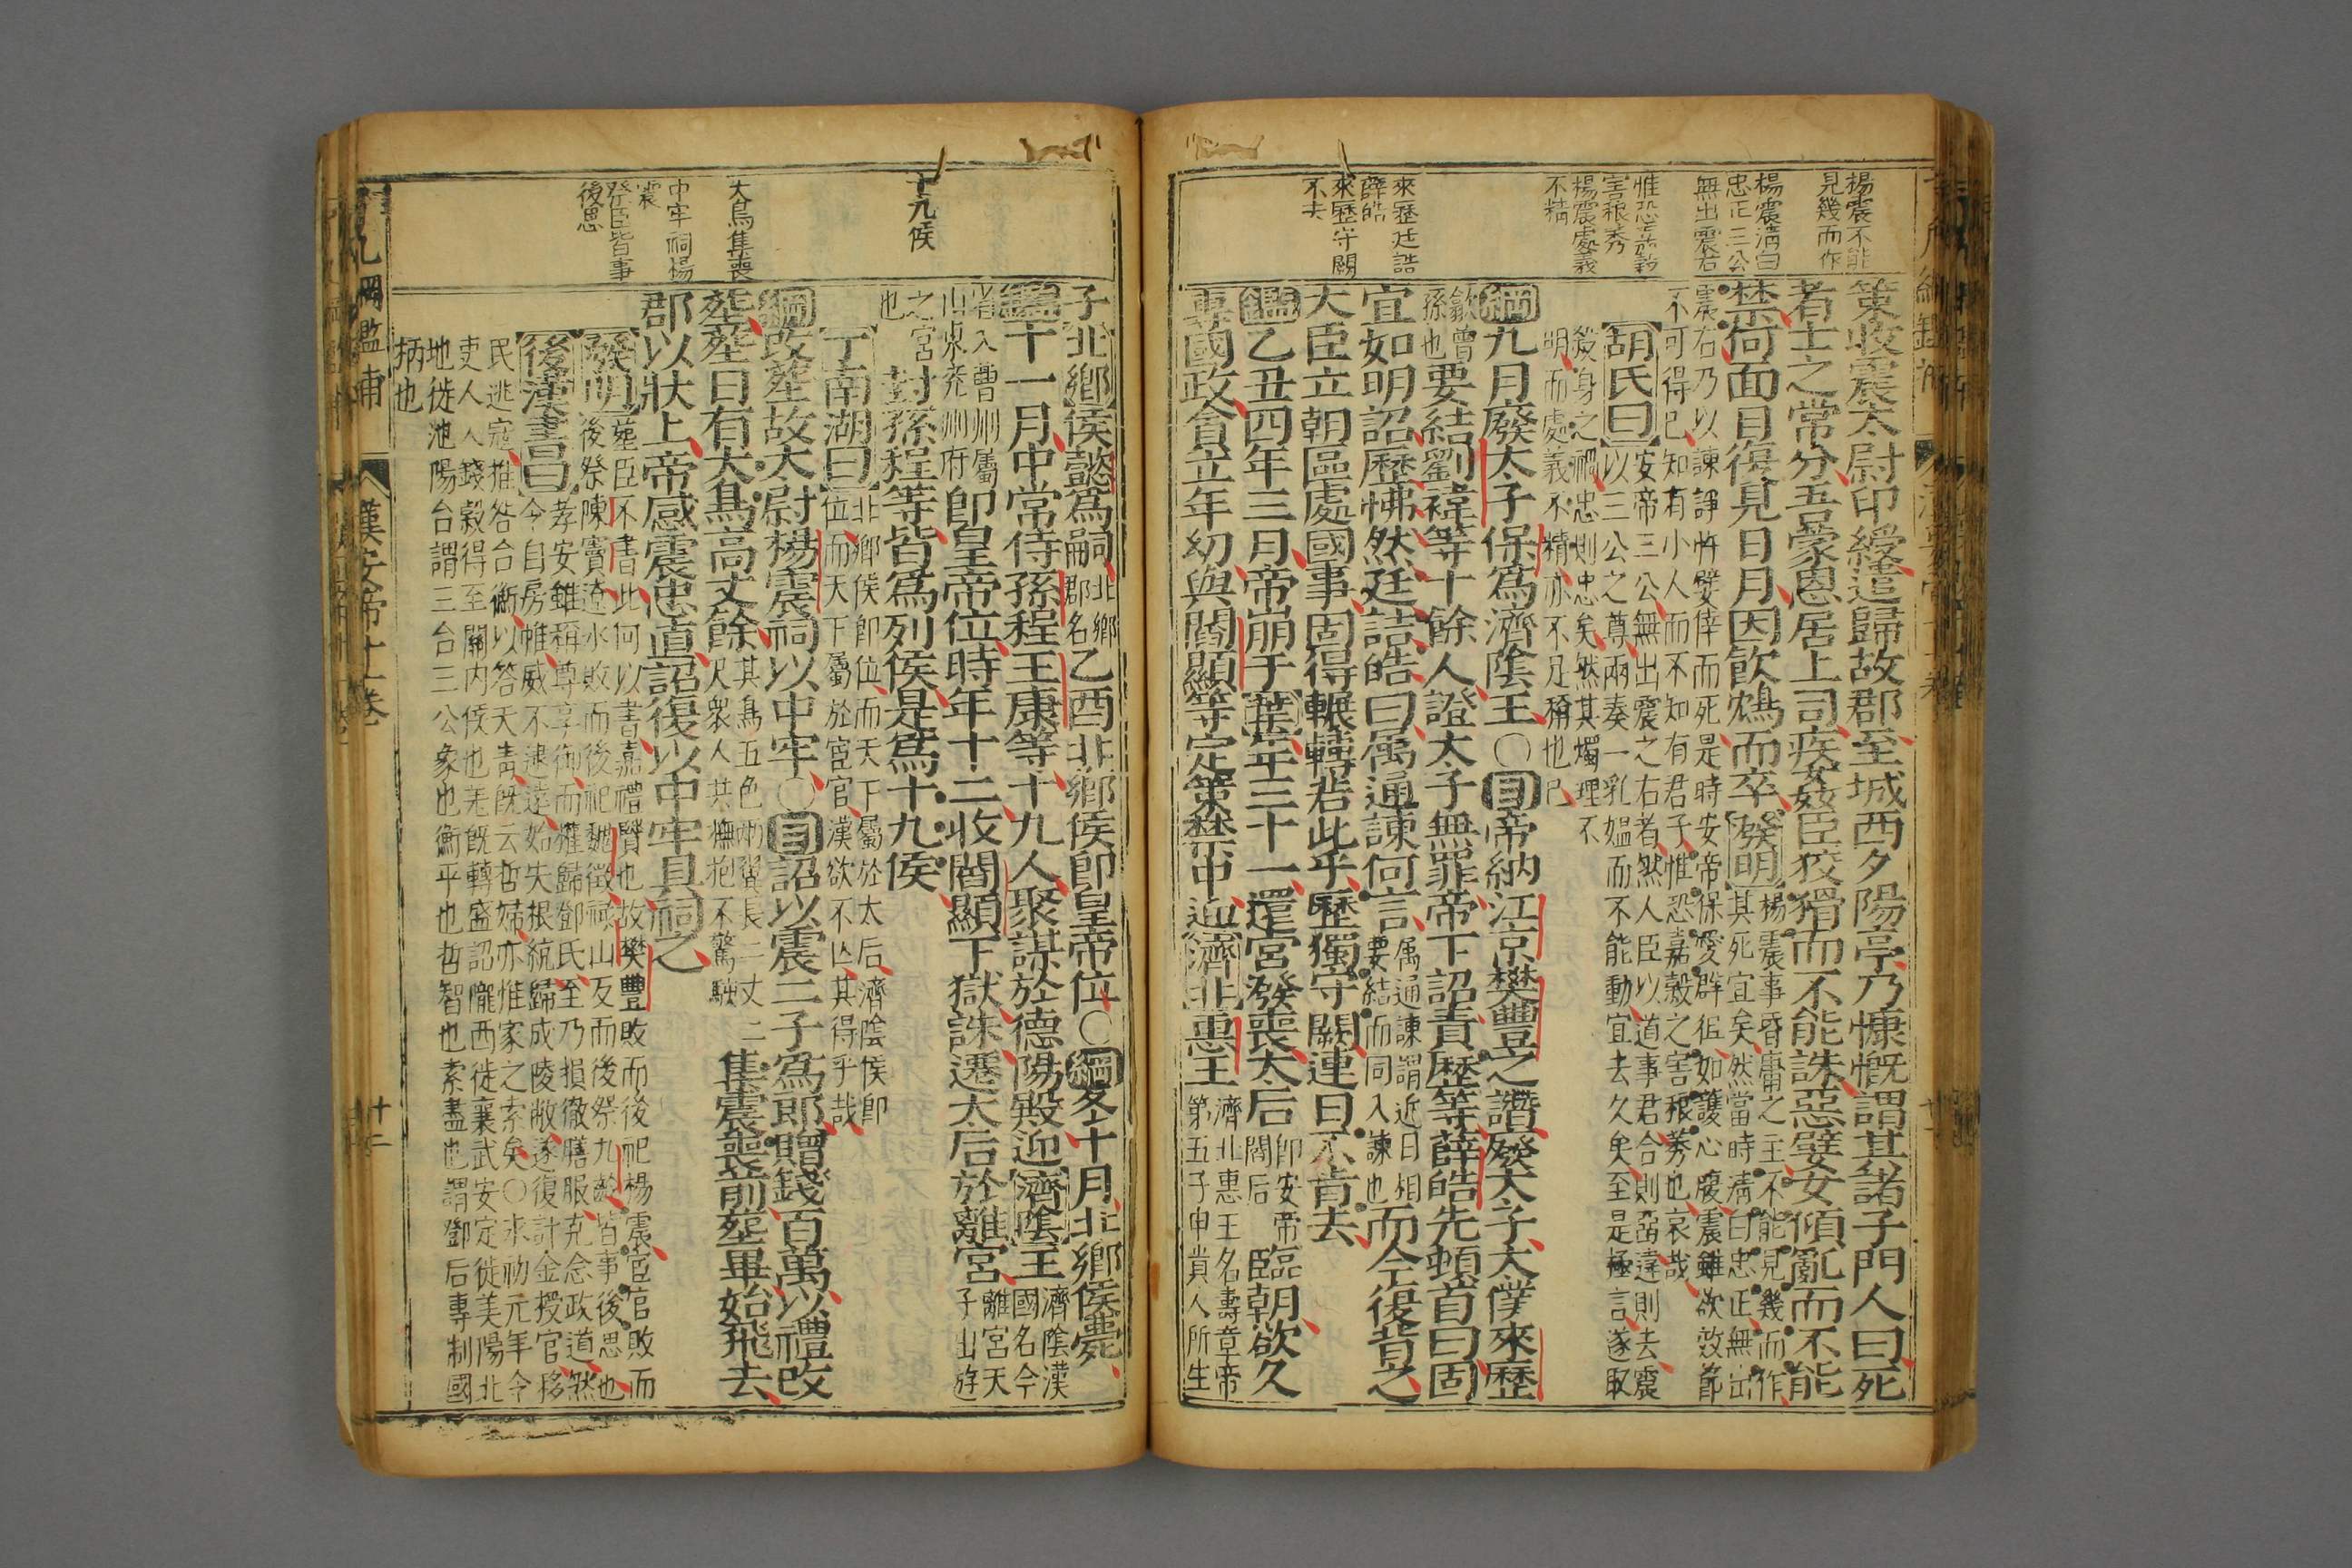 楊震不能
見幾而作
楊震清白
忠正三公
無出震右
惟恐嘉穀
害稂莠
楊震處義
不精
來歷廷詰
薛皓
來歷守闕
不去
策收震太尉印綬遣歸故郡至城西夕陽亭乃慷慨謂其諸子門人曰死
者士之常分吾蒙恩居上司疾姦臣狡猾而不能誅惡嬖女傾亂而不能
禁何面目復見日月因飲鴆而卒
發明
楊震事昏庸之主不能見幾而作
其死宜矣然當時清白忠正無出
震右乃以諫諍忤嬖倖而死是時安帝保愛群侫如護心腹震雖欲效節
不可得已知有小人而不知有君子惟恐嘉穀之害稂莠也哀哉
胡氏曰
安帝三公無出震之右者然人臣以道事君合則畱違則去震
以三公之尊兩奏一乳媪而不能動宜去久矣至是極言遂取
殺身之禍忠則忠矣然其燭理不
明而處義不精亦不足稱也已
綱九月廢太子保爲濟陰王○目帝納江京樊豐之譖廢太子太僕來歷
歙曾
孫也
要結劉禕等十餘人證太子無罪帝下詔責歷等薛皓先頓首曰固
宜如明詔歷怫然廷詰皓曰属通諫何言
属通諫謂近日相
要結而同入諫也
而今復背之
大臣立朝區處國事固得輾轉若此乎歷獨守闕連日不肯去
鑑乙丑四年三月帝崩于葉年三十一還宮發喪太后
即安帝
閻后
臨朝欲久
專國政貪立年幼與閻顯等定策禁中迎濟北惠王
濟北惠王名壽章帝
第五子申貴人所生
十九侯
大鳥集喪
中牢祠楊
震
祭臣皆事
後思
子北鄉侯懿爲嗣
北鄉
郡名
乙酉北鄉侯即皇帝位○綱冬十月北鄉侯薨
鑑十一月中常侍孫程王康等十九人聚謀於德陽殿迎濟陰王
濟陰漢
國名今
省入曹州屬
山東兖州府
即皇帝位時年十二收閻顯下獄誅遷太后於離宮
離宮天
子出遊
之宮
也
封孫程等皆爲列侯是爲十九侯
丁南湖曰
北鄉侯即位而天下屬於太后濟陰侯即
位而天下屬於宦官漢欲不亾其得乎哉
綱改塟故太尉楊震祠以中牢○目詔以震二子爲郎贈錢百萬以禮改
塟塟日有大鳥高丈餘
其鳥五色兩翼長二丈二
尺衆人共撫抱不驚駚
集震喪前塟畢始飛去
郡以狀上帝感震忠直詔復以中牢具祠之
發明
塟臣不書此何以書嘉禮賢也故樊豐敗而後祀楊震宦官敗而
後祭陳竇遼水敗而後祀魏徵祿山反而後祭九齡皆事後思也
後漢書曰
孝安雖稱尊享御而權歸鄧氏至乃損徹膳服克念政道然
令自房帷威不逮遠始失根統歸成陵敝遂復計金授官移
民逃寇推咎台衡以答天眚既云哲婦亦惟家之索矣○永初元年令
吏人入錢穀得至關内侯也羌既轉盛詔隴西徙襄武安定徙美陽北
地徙池陽台謂三台三公象也衡平也哲智也索盡也謂鄧后專制國
柄也
漢安帝十一卷
十二